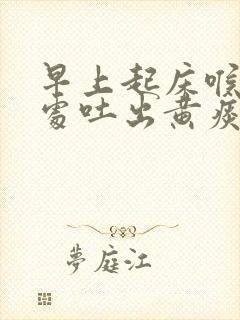 早上起床喉
处吐出黄痰
梦庭江